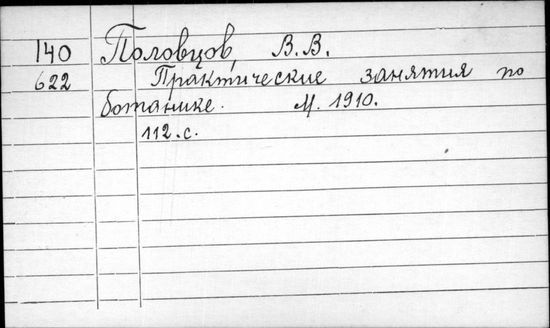 140 Половцов, В.В.
622 Практические занятия по
ботанике. М. 1910.
112.с.